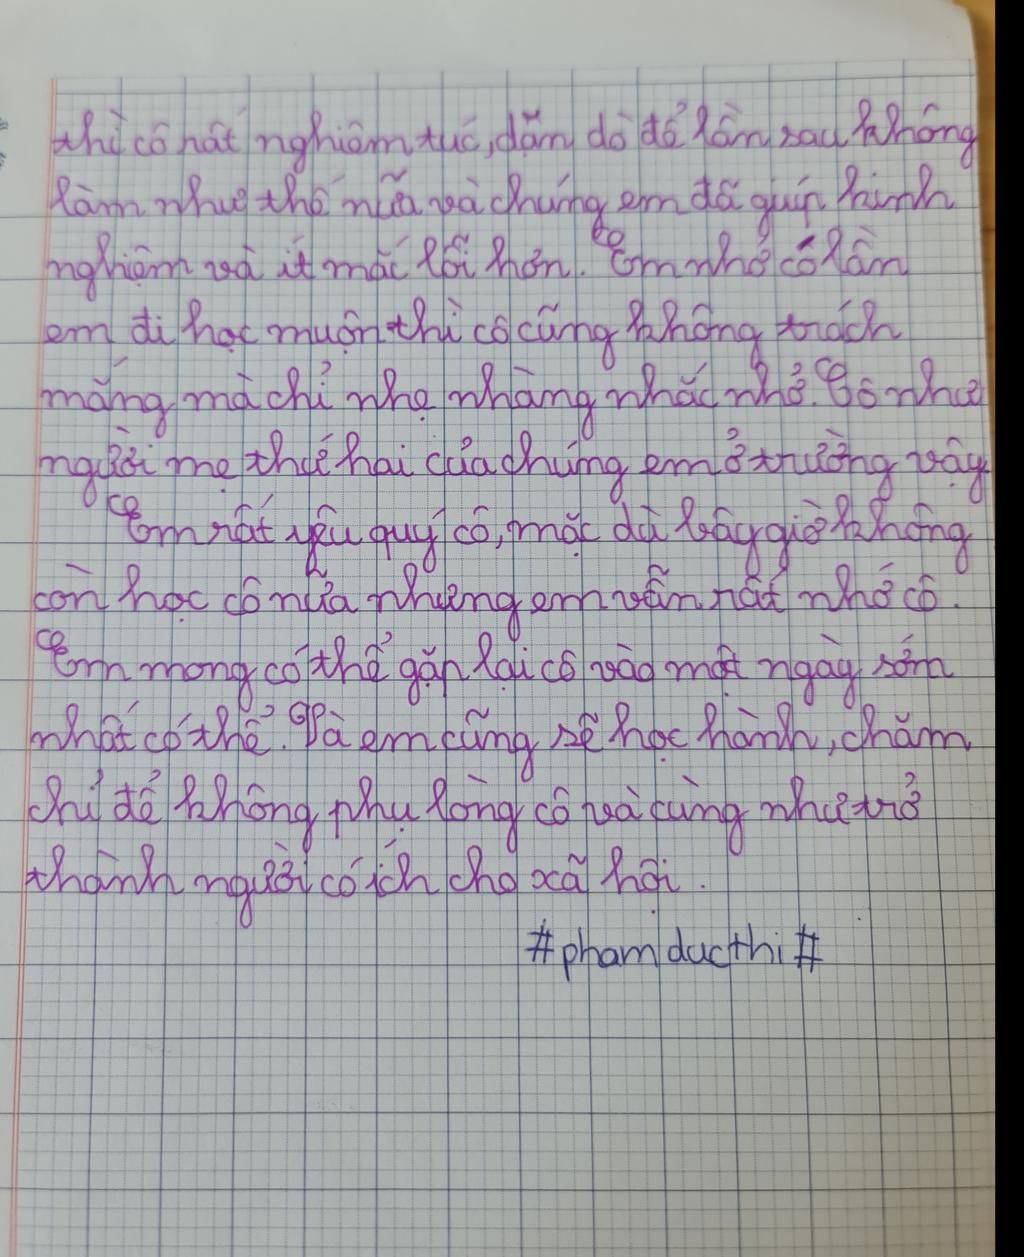 thì cô rất nghiêm túc, dặn dò để lần sau không
làm như thế nữa và chúng em đã giúp kinh
nghiệm và ít mắc lỗi hơn. Em nhớ có lần
em đi học muộn thì cô cũng không trách
mắng mà chỉ nhẹ nhàng nhắc nhở. Cô như
người mẹ thứ hai của chúng em ở trường vậy
Em rất yêu quý cô, mặc dù bây giờ không
còn học cô nữa nhưng em vẫn rất nhớ cô.
Em mong có thể gặp lại cô vào một ngày sớm
nhất có thể. Và em cũng sẽ học hành, chăm
chỉ để không phụ lòng cô và cùng như trở
thành người có ích cho xã hội.
#phamducthi#